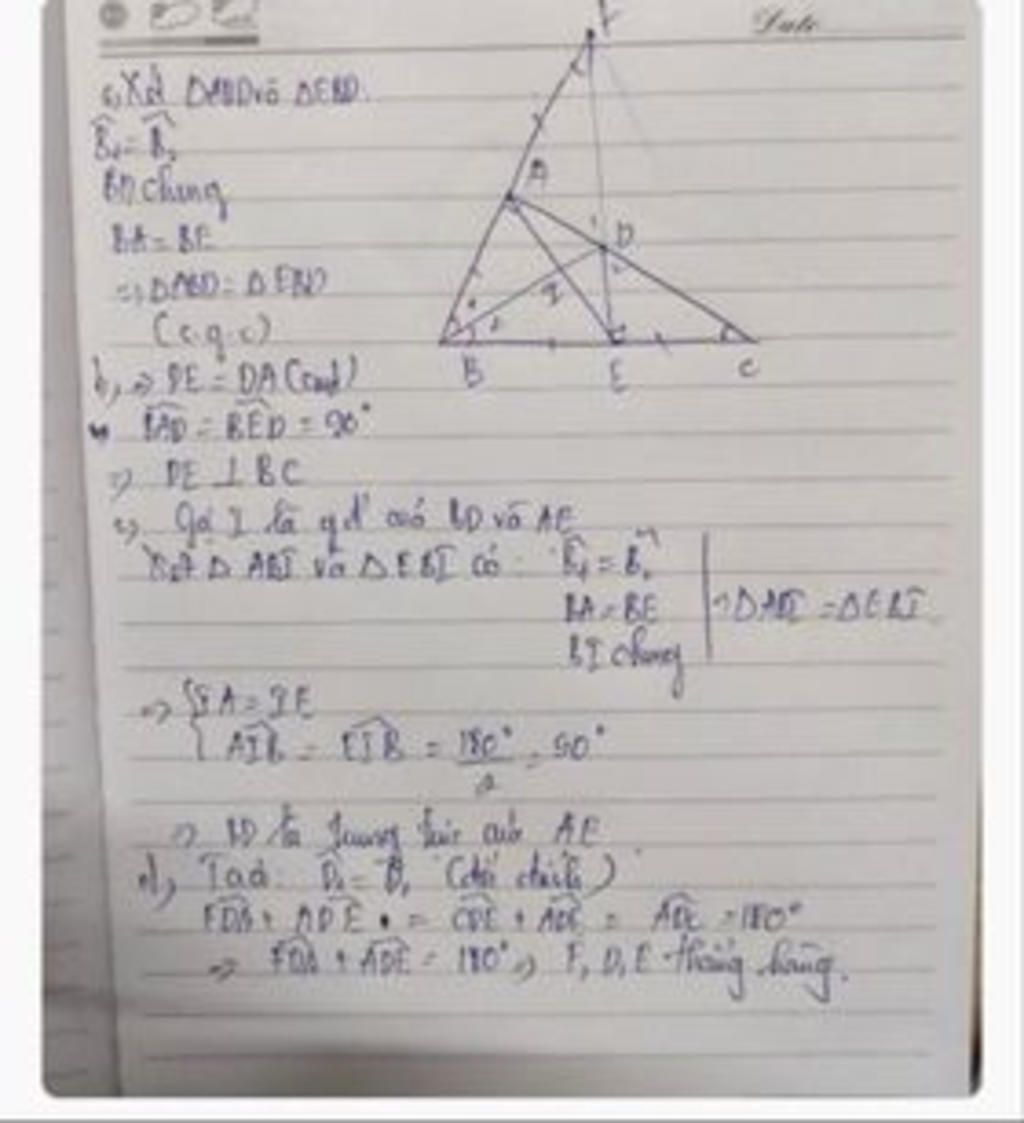 Date
a, Xét ΔABD và ΔEBD.
B₁ = B₂
BD chung
BA = BE
=> ΔABD = ΔEBD
(c.g.c)
b, => DE = DA (cmt)
BAD = BED = 90°
=> DE ⊥ BC
c, Gọi I là gđ của BD và AE
Xét Δ ABI và ΔEBI có: B₁ = B₂
BA = BE
BI chung
=> ΔABI = ΔEBI
=> { IA = IE
AIB = EIB = 180°/2 = 90°
=> BD là trung trực của AE
d, Ta có: (đối đỉnh)
FDA + ADE = CDE + ADE = ADC = 180°
=> FDA + ADE = 180° => F, D, E thẳng hàng.
F
A
D
I
B
E
C